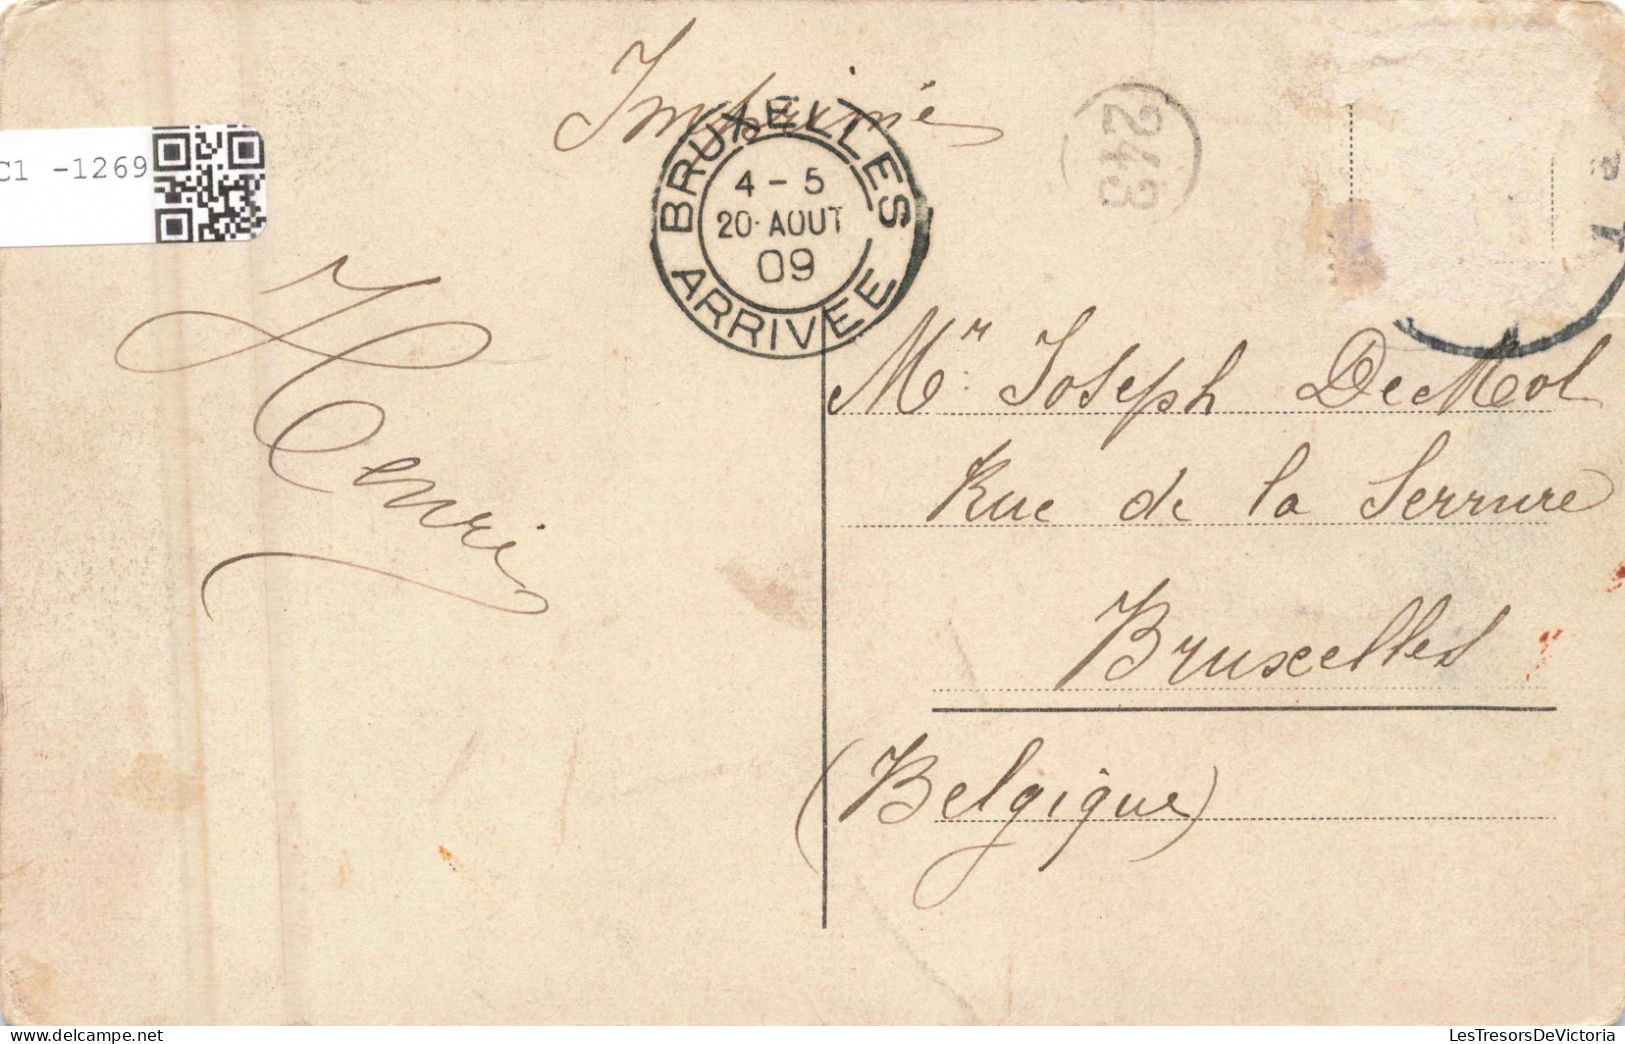 Imprimé
C1 -1269
BRUXELLES
4 - 5
20· AOUT
09
ARRIVEE
243
Henri
Mr. Joseph De Mol
Rue de la Serrure
Bruxelles
(Belgique)
LesTresorsDeVictoria